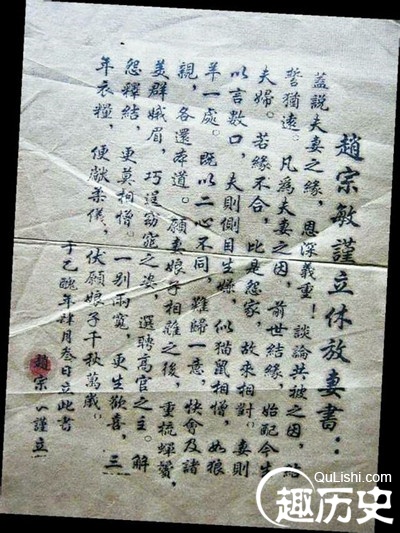 趙宗敏謹立休放妻書：
蓋說夫妻之緣，恩深義重！談論共被之因，結
誓猶遠。凡為夫妻之因，前世結緣，始配今生
夫婦。若緣不合，比是怨家，故來相對。妻則
以言數口，夫則側目生嫌，似猫鼠相憎，如狼
羊一處。既以二心不同，難歸一意，快會及諸
親，各還本道。願妻娘子相離之後，重梳蟬鬢，
美群娥眉，巧逞窈窕之姿，選聘高官之主。解
怨釋結，更莫相憎。一別兩寬，更生歡喜，三
年衣糧，便獻柔儀，伏願娘子千秋萬歲。
于乙醜年肆月叁日立此書
趙宗 謹立
QuLishi.com
趣历史